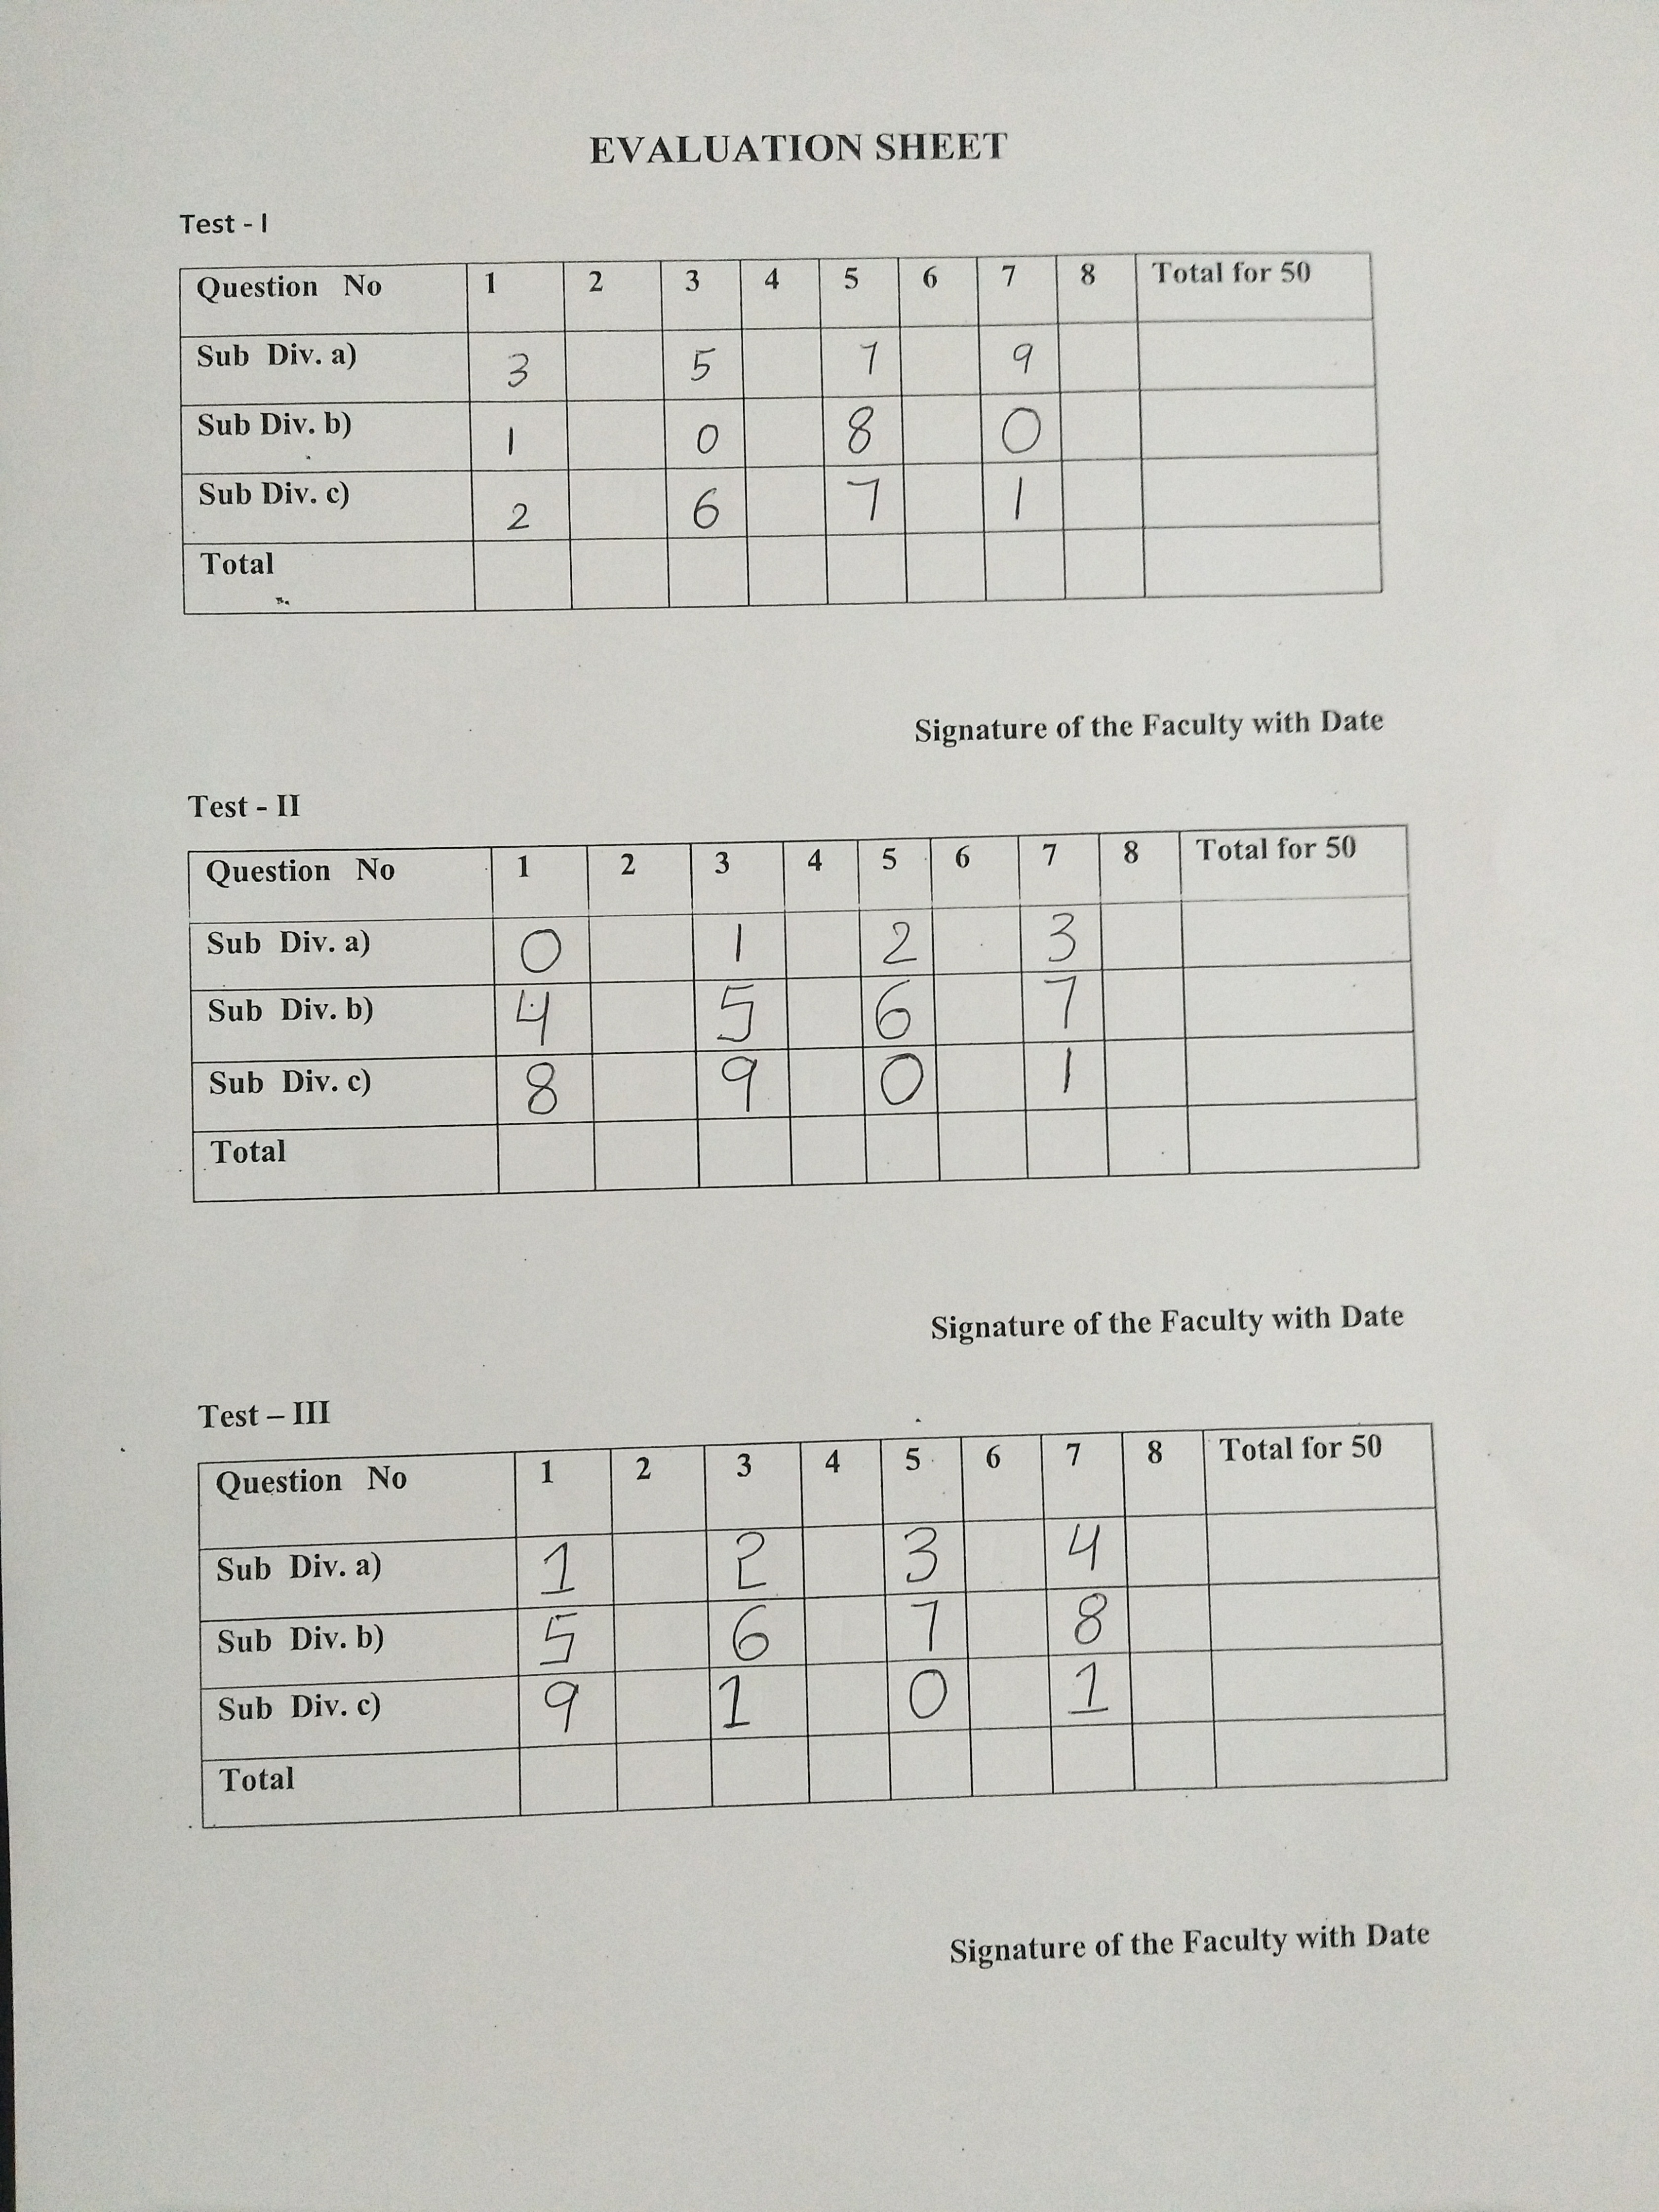 EVALUATION SHEET
Test - I
Question No 1 2 3 4 5 6 7 8 Total for 50
Sub Div. a) 3 5 7 9
Sub Div. b) 1 0 8 0
Sub Div. c) 2 6 7 1
Total
Signature of the Faculty with Date
Test - II
Question No 1 2 3 4 5 6 7 8 Total for 50
Sub Div. a) 0 1 2 3
Sub Div. b) 4 5 6 7
Sub Div. c) 8 9 0 1
Total
Signature of the Faculty with Date
Test – III
Question No 1 2 3 4 5 6 7 8 Total for 50
Sub Div. a) 1 2 3 4
Sub Div. b) 5 6 7 8
Sub Div. c) 9 1 0 1
Total
Signature of the Faculty with Date